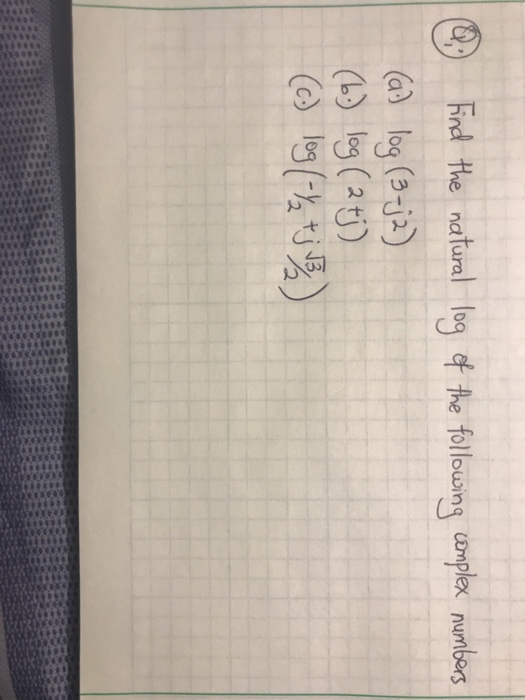 Q: Find the natural log of the following complex numbers
(a.) log (3-j2)
(b.) log (2+j)
(c.) log (-1/2 + j √3/2)